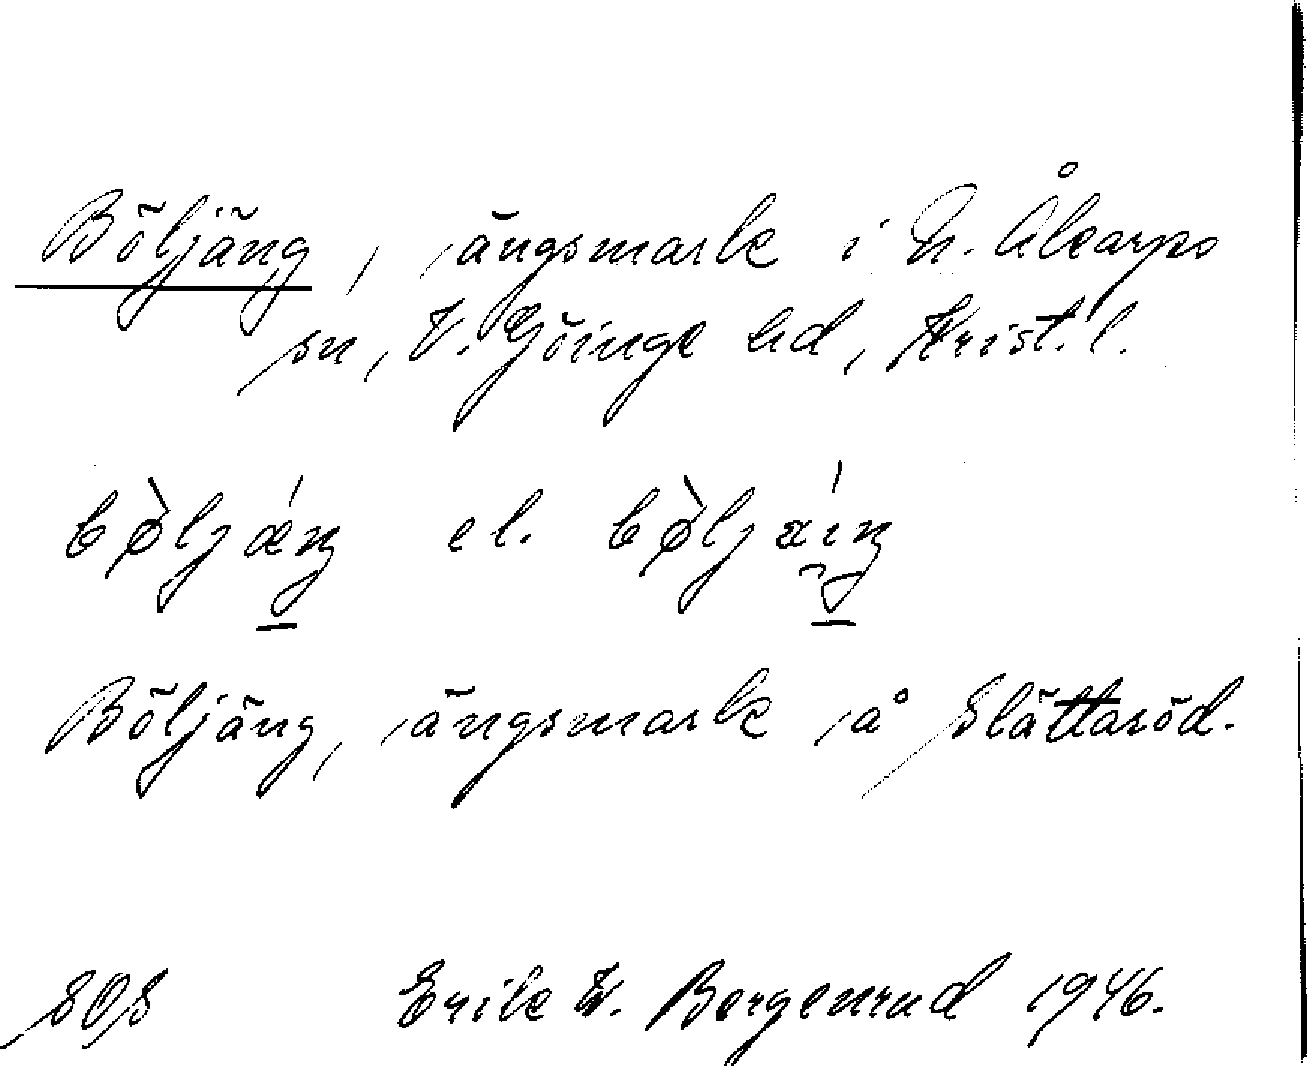 Böljäng, ängsmark i N. Åkarps
sn, V. Göinge hd, Krist. l.
bø̀ljǽŋ el. bø̀ljæíŋ
Böljäng, ängsmark å Slättaröd.
SOS Erik W. Bergenrud 1946.